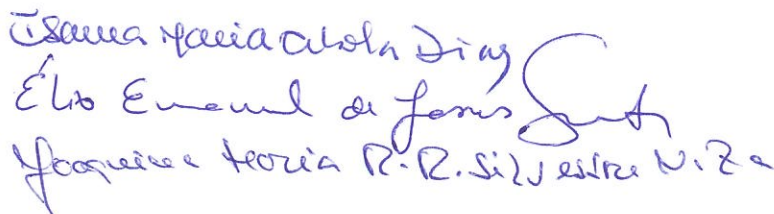 Isaura Maria Dias
Élio Emanuel de Jesus Santos
Joaquina Maria R. R. Silvestre Niza